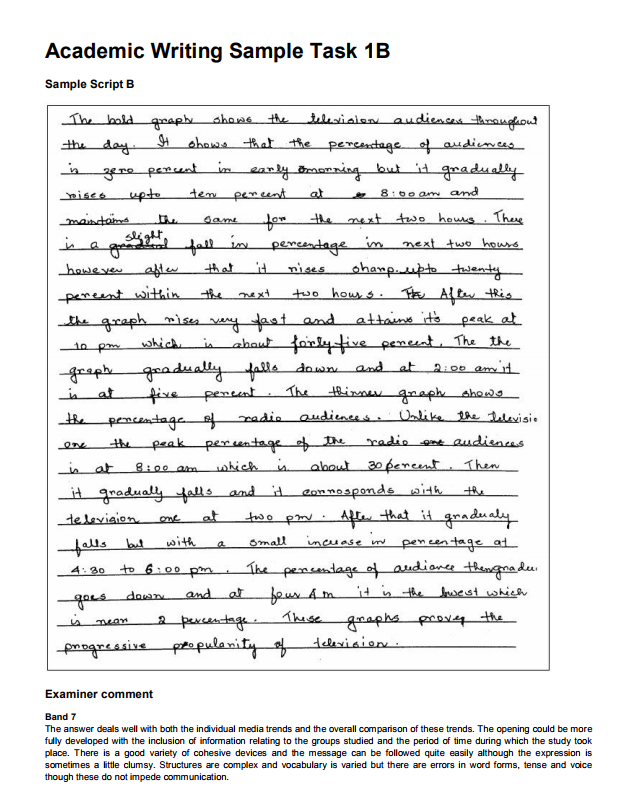 Academic Writing Sample Task 1B
Sample Script B
The bold graph shows the television audiences throughout
the day. It shows that the percentage of audiences
is zero percent in early morning but it gradually
rises upto ten percent at 8:00am and
maintains the same for the next two hours. There
is a slight fall in percentage in next two hours
however after that it rises sharp upto twenty
percent within the next two hours. The After this
the graph rises very fast and attains it's peak at
10 pm which is about forly-five percent. The the
graph gradually falls down and at 2:00 am it
is at five percent. The thinner graph shows
the percentage of radio audiences. Unlike the televisio
one the peak percentage of the radio one audiences
is at 8:00 am which is about 30 percent. Then
it gradually falls and it corrosponds with the
television one at two pm. After that it gradualy
falls but with a small increase in percentage at
4:30 to 6:00 pm. The percentage of audiance then gradu
goes down and at four Am it is the lowest which
is near 2 percentage. These graphs proves the
progressive propularity of television.
Examiner comment
Band 7
The answer deals well with both the individual media trends and the overall comparison of these trends. The opening could be more
fully developed with the inclusion of information relating to the groups studied and the period of time during which the study took
place. There is a good variety of cohesive devices and the message can be followed quite easily although the expression is
sometimes a little clumsy. Structures are complex and vocabulary is varied but there are errors in word forms, tense and voice
though these do not impede communication.